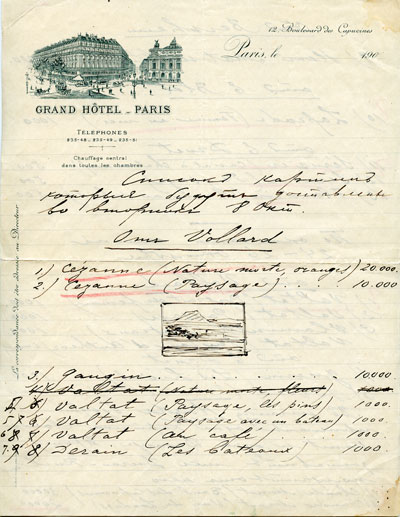 12, Boulevard des Capucines
Paris, le 190
GRAND HÔTEL _ PARIS
TÉLÉPHONES
235-48_235-49_235-51
Chauffage central
dans toutes les chambres
Список картин
которые будут доставлены
во вторник 8 Окт.
Отъ Vollard
1) Cézanne (Nature morte, oranges) 20.000
2) Cézanne (Paysage) . . . . 10.000
3) Gauguin . . . . 10,000
4) Valtat (Nature morte, fleurs) 1000
Valtat (Paysage, les pins) 1000
Valtat (Paysage avec un bateau) 1000
Valtat (au café) 1000
Derain (Les Bateaux) 1000